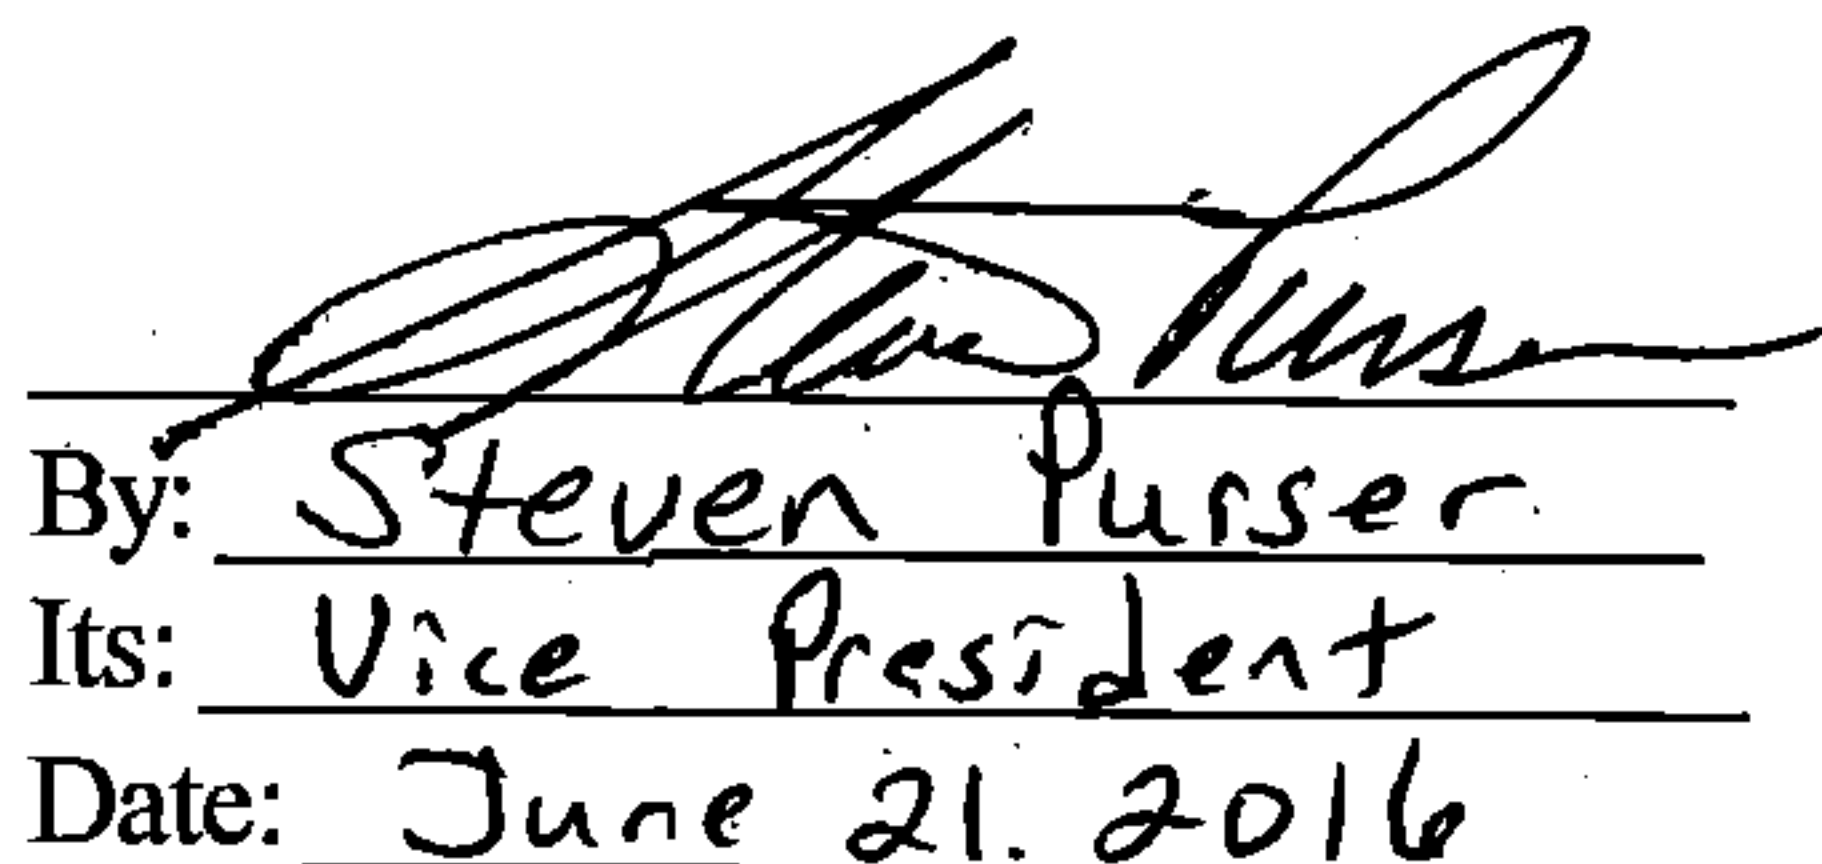 Steve Purser
By: Steven Purser
Its: Vice President
Date: June 21. 2016